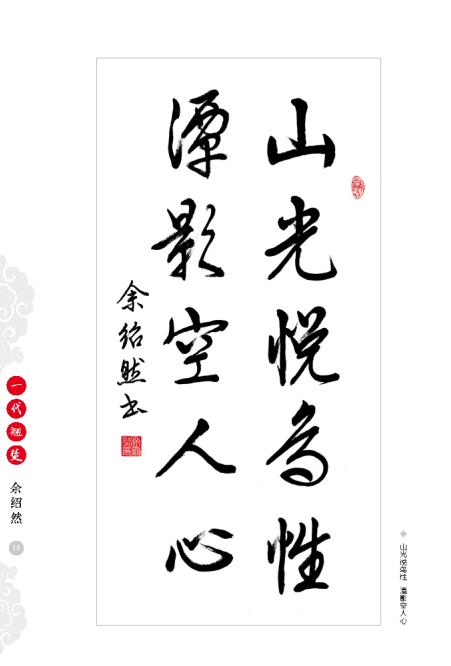 山光悦鸟性
潭影空人心
余绍然书
一代翘楚
余绍然
山光悦鸟性 潭影空人心